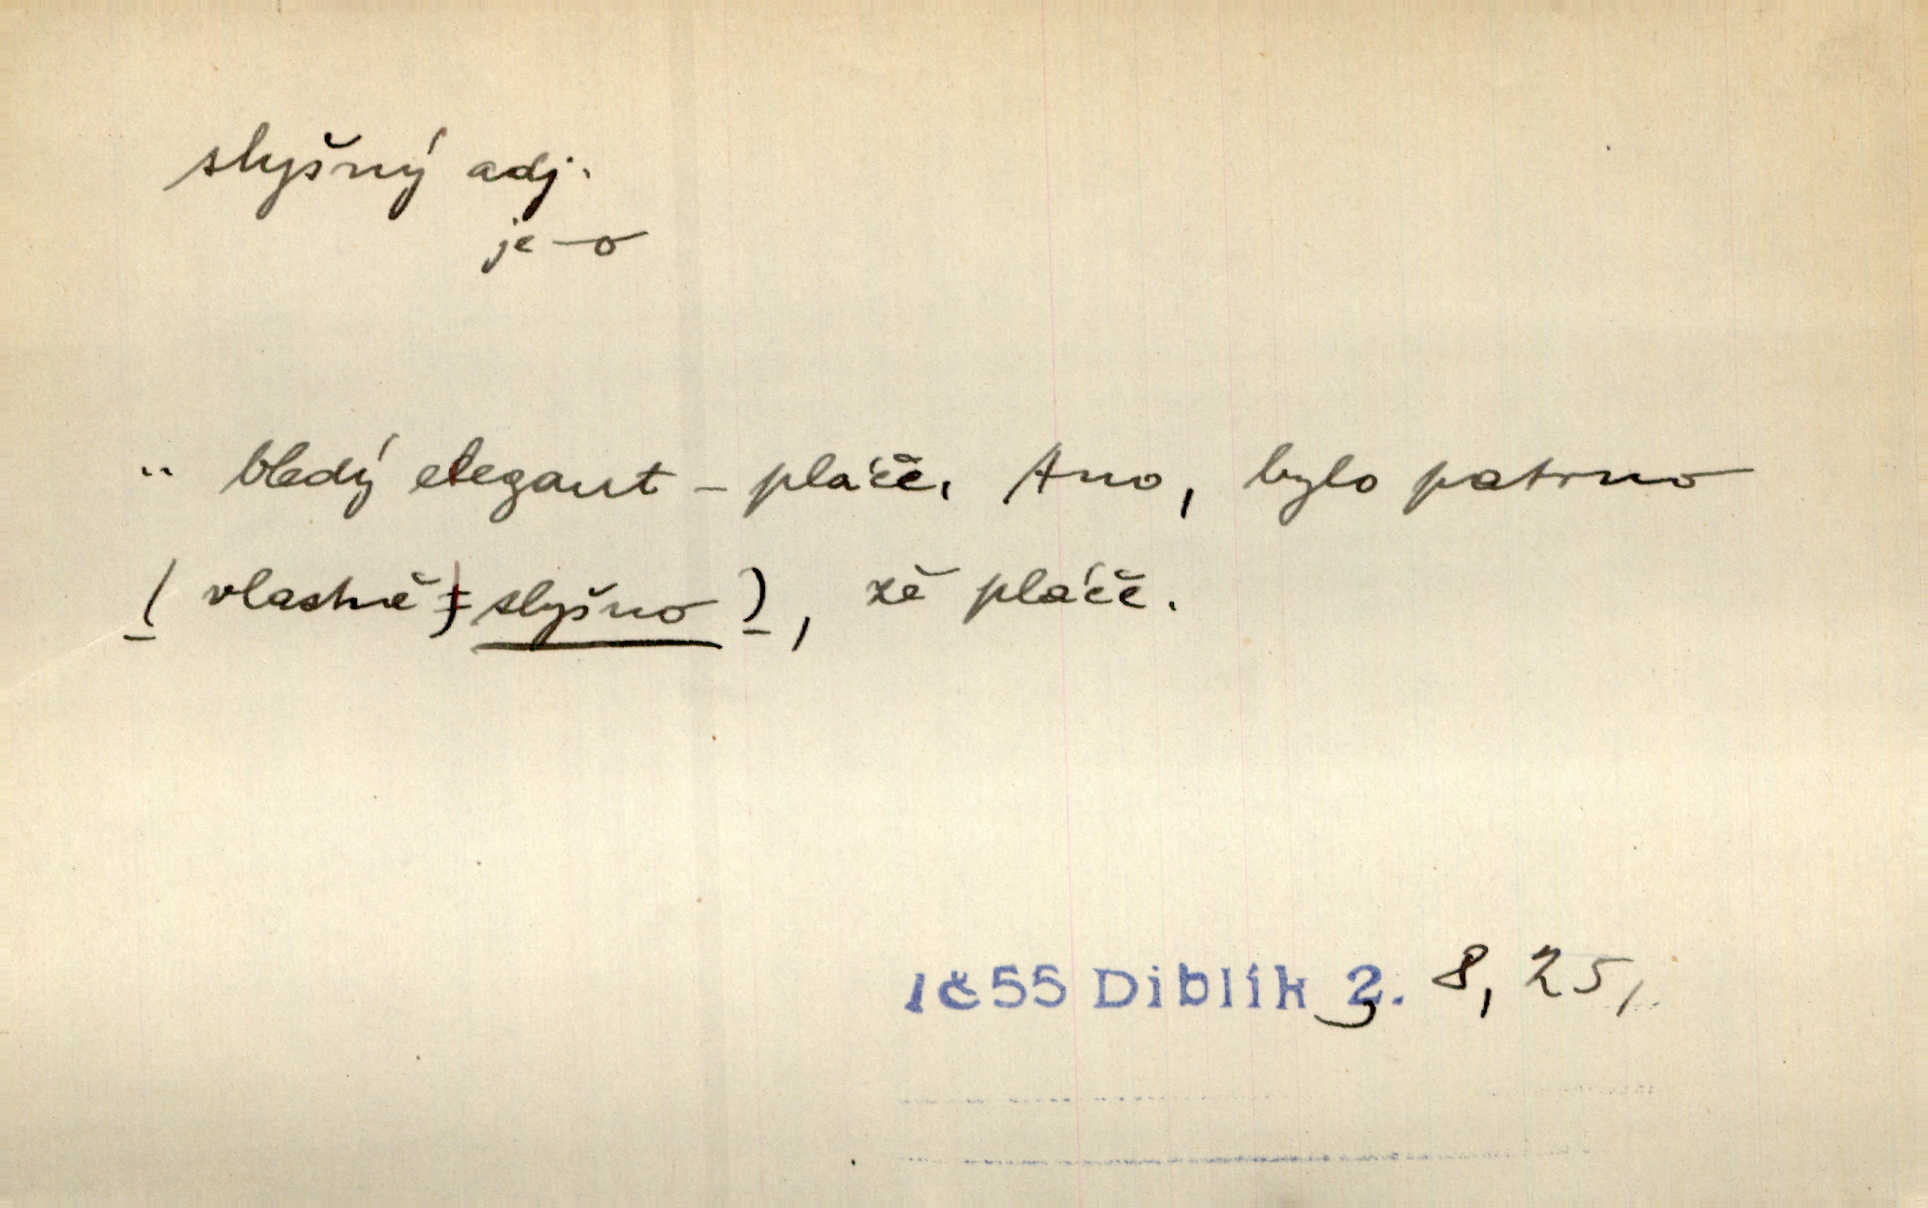 slyšný adj.
je -o
.. bledý elegant – pláče. Ano, bylo patrno
( vlastně slyšno ), že pláče.
1č55 Diblík 3. 8, 25,